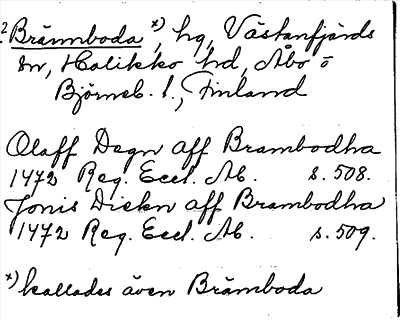 2 Brännboda x), hg, Västanfjärds
sn, Halikko hd, Åbo o
Björneb. l., Finland
Olaff Degn aff Brambodha
1472 Reg. Eccl. Ab. s. 508.
Jonis Diekn aff Brambodha
1472 Reg. Eccl. Ab. s. 509.
x) kallades även Brämboda